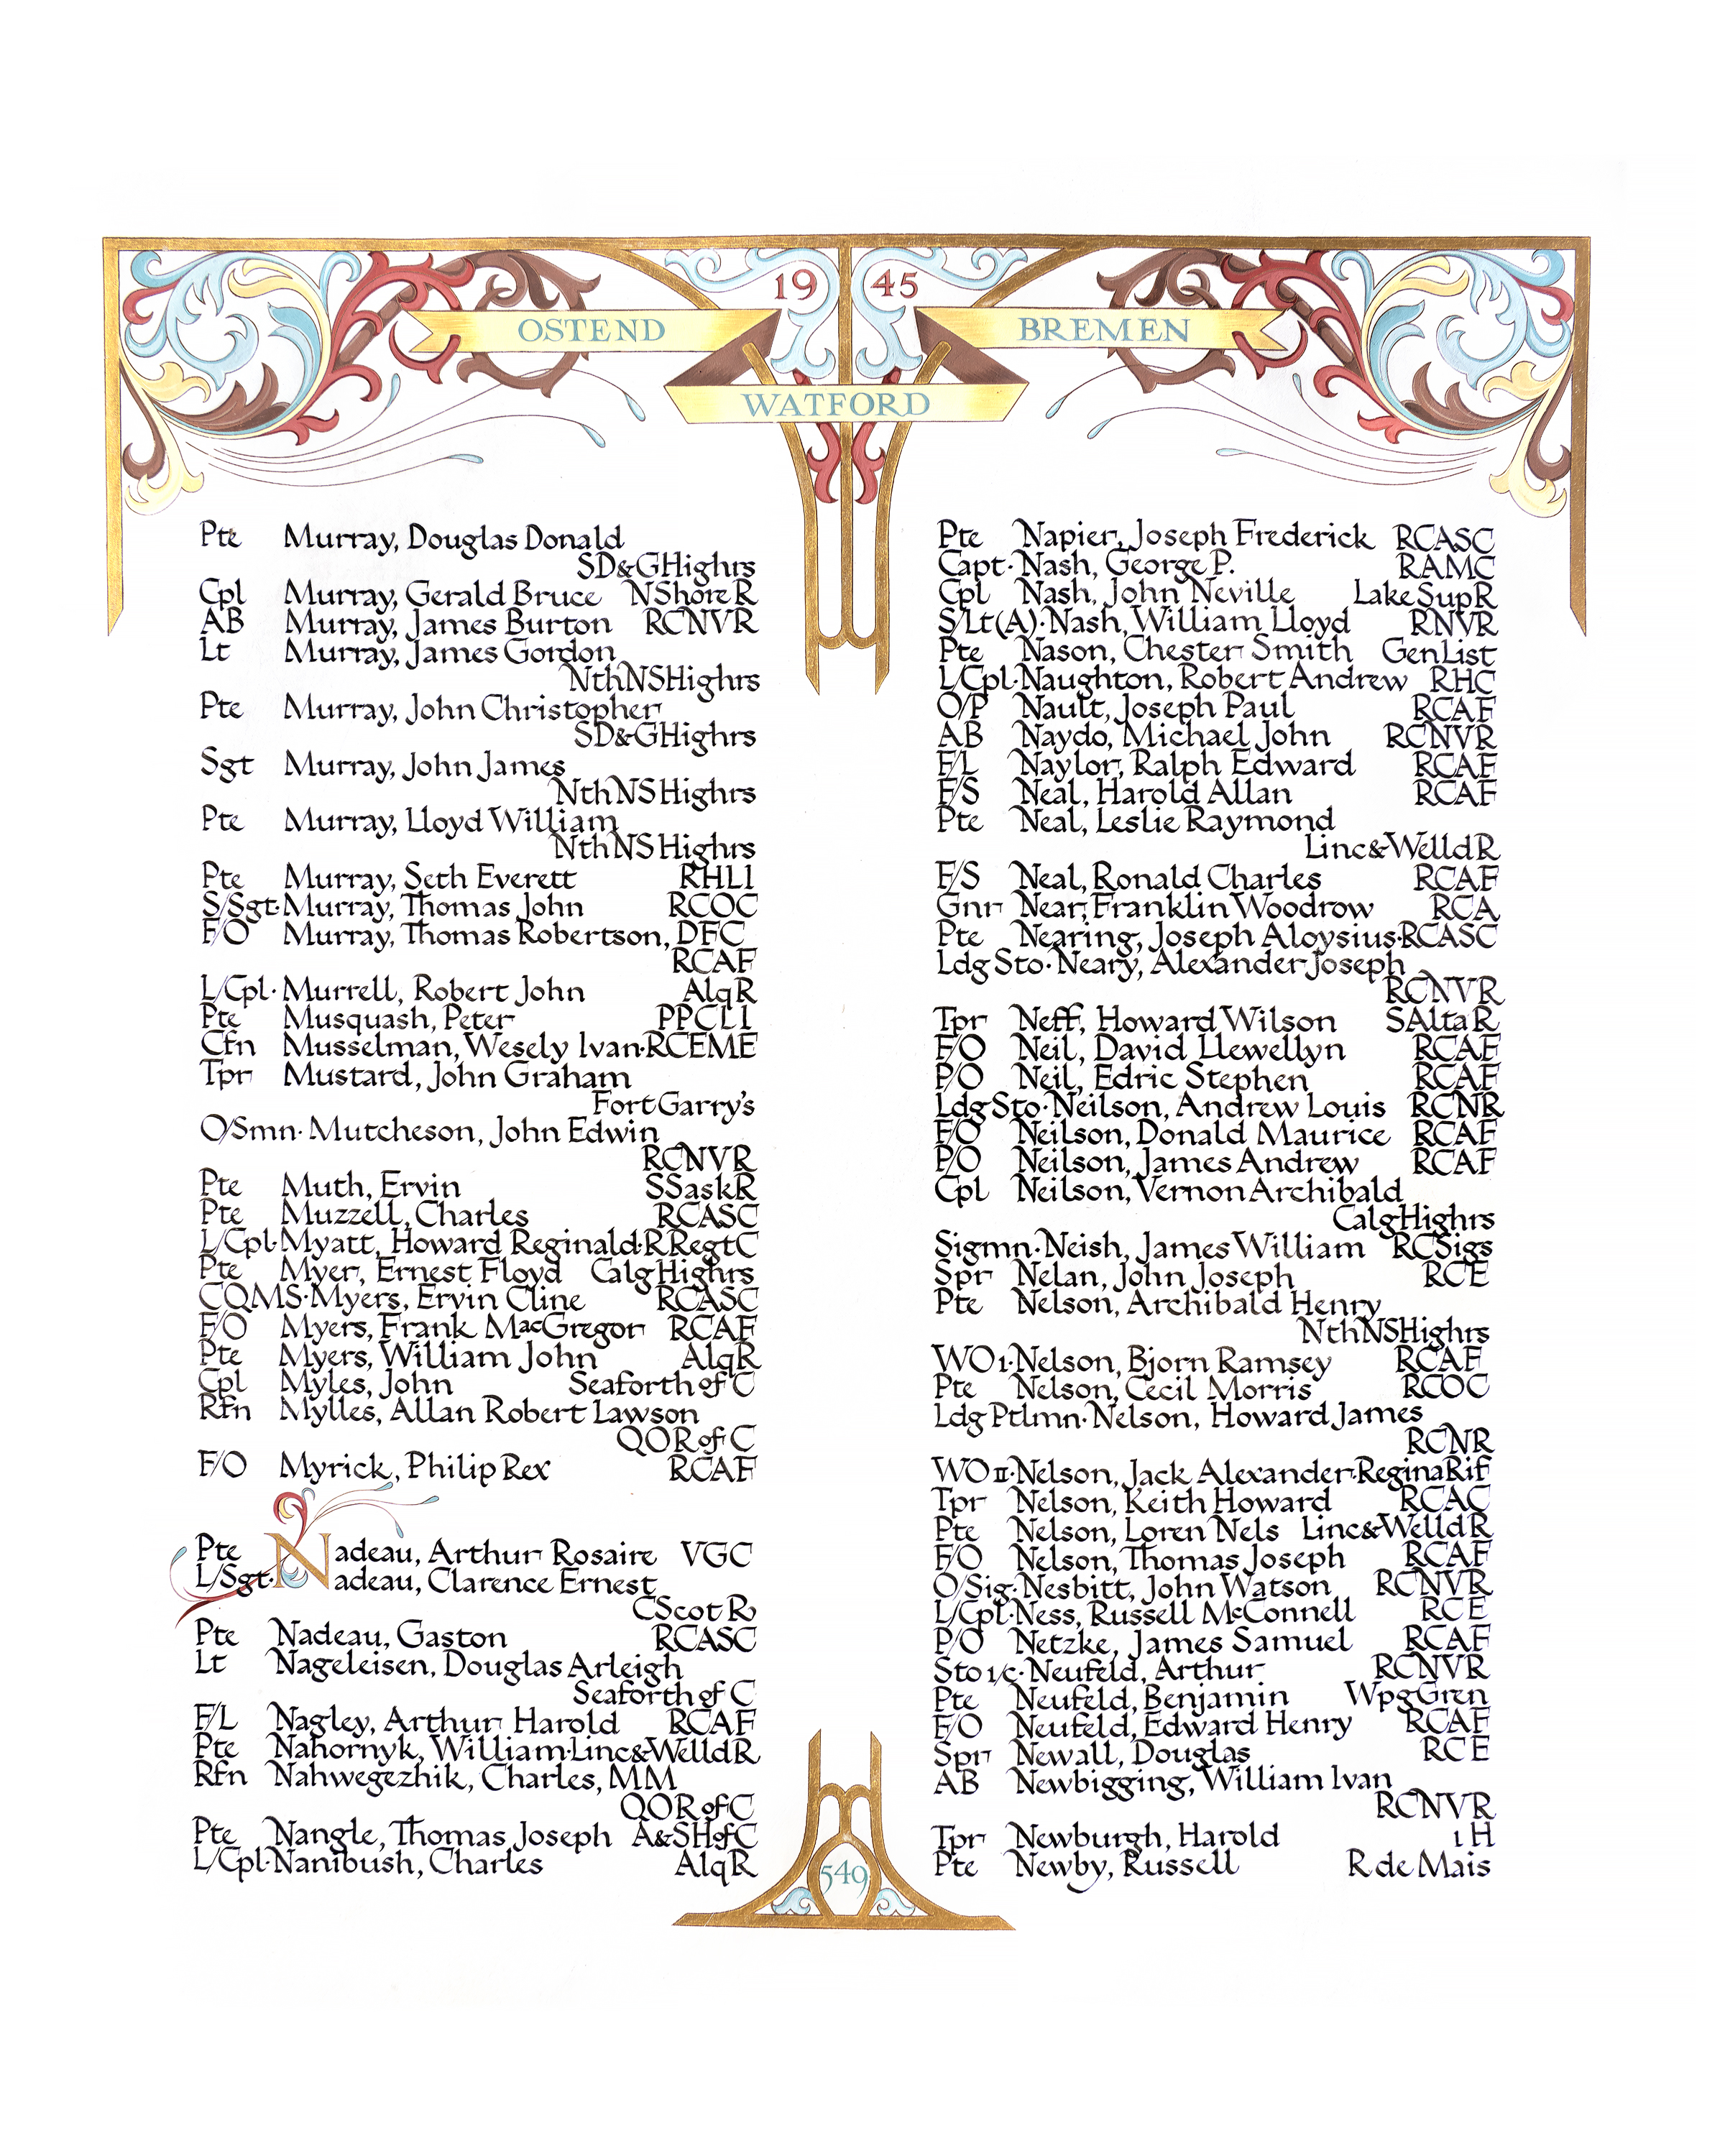 19 45
OSTEND
BREMEN
WATFORD
Pte Murray, Douglas Donald
SD&GHighrs
Cpl Murray, Gerald Bruce NShoreR
AB Murray, James Burton RCNVR
Lt Murray, James Gordon
NthNSHighrs
Pte Murray, John Christopher
SD&GHighrs
Sgt Murray, John James
NthNSHighrs
Pte Murray, Lloyd William
NthNSHighrs
Pte Murray, Seth Everett RHLI
S/Sgt·Murray, Thomas John RCOC
F/O Murray, Thomas Robertson, DFC
RCAF
L/Cpl·Murrell, Robert John AlqR
Pte Musquash, Peter PPCLI
Cfn Musselman, Wesely Ivan·RCEME
Tpr Mustard, John Graham
FortGarry's
O/Smn·Mutcheson, John Edwin
RCNVR
Pte Muth, Ervin SSaskR
Pte Muzzell, Charles RCASC
L/Cpl·Myatt, Howard Reginald·RRegtC
Pte Myer, Ernest Floyd CalgHighrs
CQMS·Myers, Ervin Cline RCASC
F/O Myers, Frank MacGregor RCAF
Pte Myers, William John AlqR
Cpl Myles, John Seaforth of C
Rfn Mylles, Allan Robert Lawson
QOR of C
F/O Myrick, Philip Rex RCAF
Pte Nadeau, Arthur Rosaire VGC
L/Sgt·Nadeau, Clarence Ernest
CScotR
Pte Nadeau, Gaston RCASC
Lt Nageleisen, Douglas Arleigh
Seaforth of C
F/L Nagley, Arthur Harold RCAF
Pte Nahornyk, William·Linc&WelldR
Rfn Nahwegezhik, Charles, MM
QOR of C
Pte Nangle, Thomas Joseph A&SHofC
L/Cpl·Nanibush, Charles AlqR
Pte Napier, Joseph Frederick RCASC
Capt·Nash, George P. RAMC
Cpl Nash, John Neville LakeSupR
S/Lt(A)·Nash, William Lloyd RNVR
Pte Nason, Chester Smith GenList
L/Cpl·Naughton, Robert Andrew RHC
O/P Nault, Joseph Paul RCAF
AB Naydo, Michael John RCNVR
F/L Naylor, Ralph Edward RCAF
F/S Neal, Harold Allan RCAF
Pte Neal, Leslie Raymond
Linc&WelldR
F/S Neal, Ronald Charles RCAF
Gnr Near, Franklin Woodrow RCA
Pte Nearing, Joseph Aloysius·RCASC
Ldg Sto·Neary, Alexander Joseph
RCNVR
Tpr Neff, Howard Wilson SAltaR
F/O Neil, David Llewellyn RCAF
P/O Neil, Edric Stephen RCAF
Ldg Sto·Neilson, Andrew Louis RCNR
F/O Neilson, Donald Maurice RCAF
P/O Neilson, James Andrew RCAF
Cpl Neilson, Vernon Archibald
CalgHighrs
Sigmn·Neish, James William RCSigs
Spr Nelan, John Joseph RCE
Pte Nelson, Archibald Henry
NthNSHighrs
WO1·Nelson, Bjorn Ramsey RCAF
Pte Nelson, Cecil Morris RCOC
Ldg Ptlmn·Nelson, Howard James
RCNR
WOII·Nelson, Jack Alexander·ReginaRif
Tpr Nelson, Keith Howard RCAC
Pte Nelson, Loren Nels Linc&WelldR
F/O Nelson, Thomas Joseph RCAF
O/Sig·Nesbitt, John Watson RCNVR
L/Cpl·Ness, Russell McConnell RCE
P/O Netzke, James Samuel RCAF
Sto 1/c·Neufeld, Arthur RCNVR
Pte Neufeld, Benjamin WpgGren
F/O Neufeld, Edward Henry RCAF
Spr Newall, Douglas RCE
AB Newbigging, William Ivan
RCNVR
Tpr Newburgh, Harold 1H
Pte Newby, Russell R de Mais
549